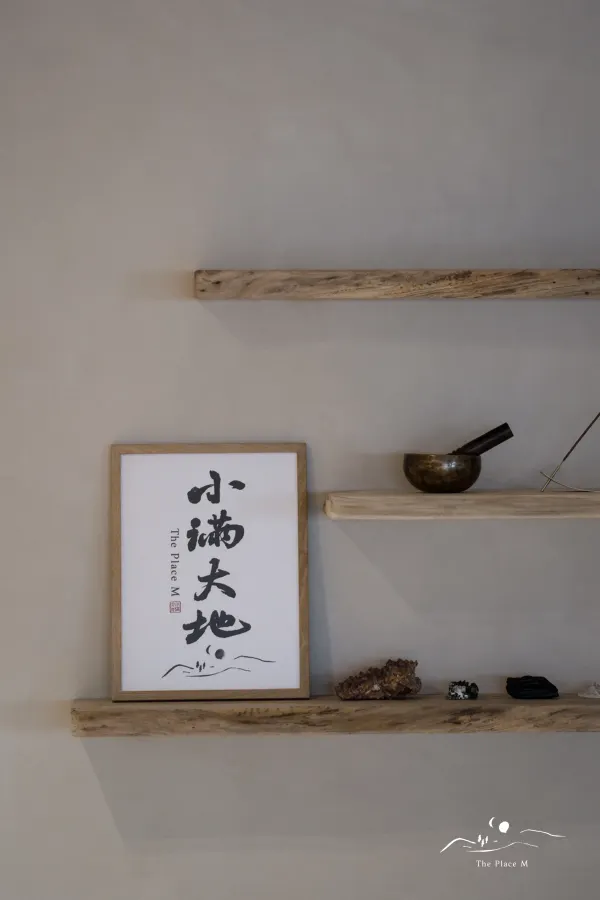 小满大地
The Place M
The Place M